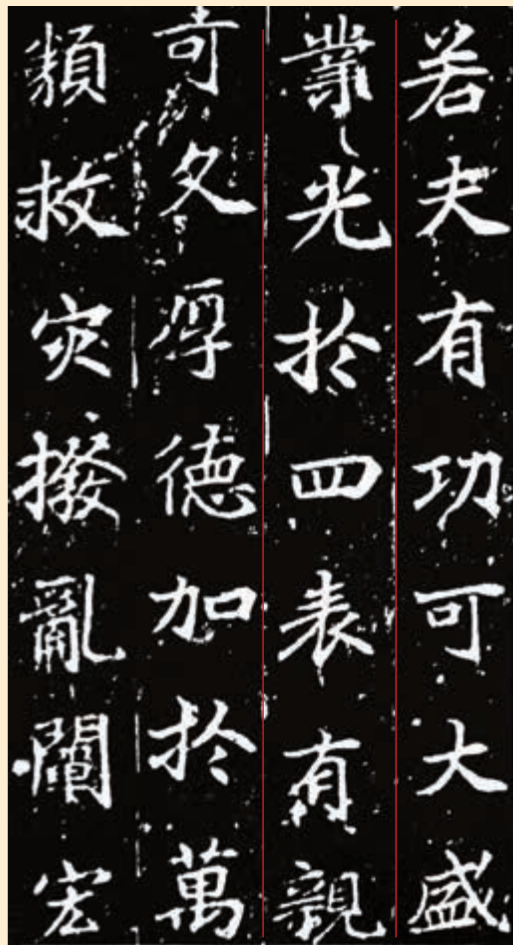 若夫有功可大盛
業光於四表有親
可久厚德加於萬
類救灾撥亂闡宏